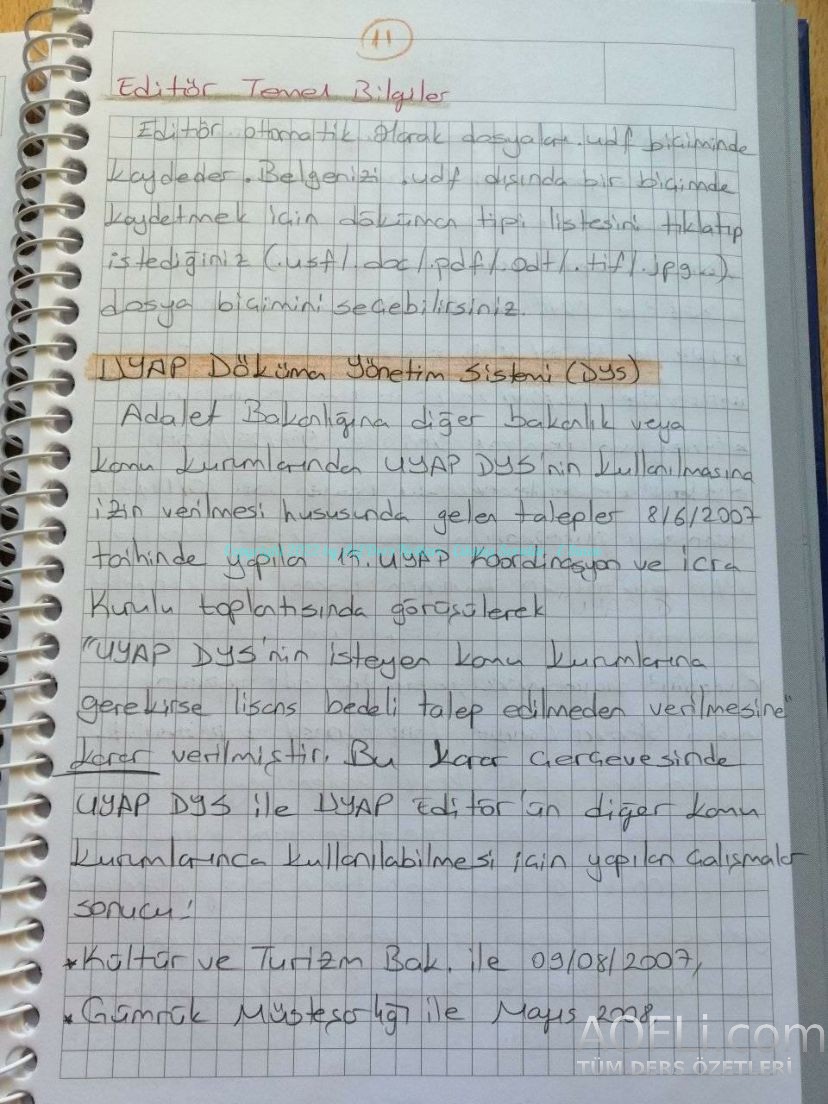 11
Editör Temel Bilgiler
Editör otomatik olarak dosyaları .udf biçiminde
kaydeder. Belgenizi .udf dışında bir biçimde
kaydetmek için döküman tipi listesini tıklatıp
istediğiniz (.usf/.doc/.pdf/.odt/.tif/.jpg...)
dosya biçimini seçebilirsiniz.
UYAP Döküman Yönetim Sistemi (DYS)
Adalet Bakanlığına diğer bakanlık veya
kamu kurumlarından UYAP DYS'nin kullanılmasına
izin verilmesi hususunda gelen talepler 8/6/2007
tarihinde yapılan UYAP Koordinasyon ve İcra
Kurulu toplantısında görüşülerek
"UYAP DYS'nin isteyen kamu kurumlarına
gerekirse lisans bedeli talep edilmeden verilmesine"
karar verilmiştir. Bu karar çerçevesinde
UYAP DYS ile UYAP Editör'ün diğer kamu
kurumlarınca kullanılabilmesi için yapılan çalışmalar
sonucu;
*Kültür ve Turizm Bak. ile 09/08/2007,
*Gümrük Müsteşarlığı ile Mayıs 2008,
AOFLi.com
TÜM DERS ÖZETLERİ